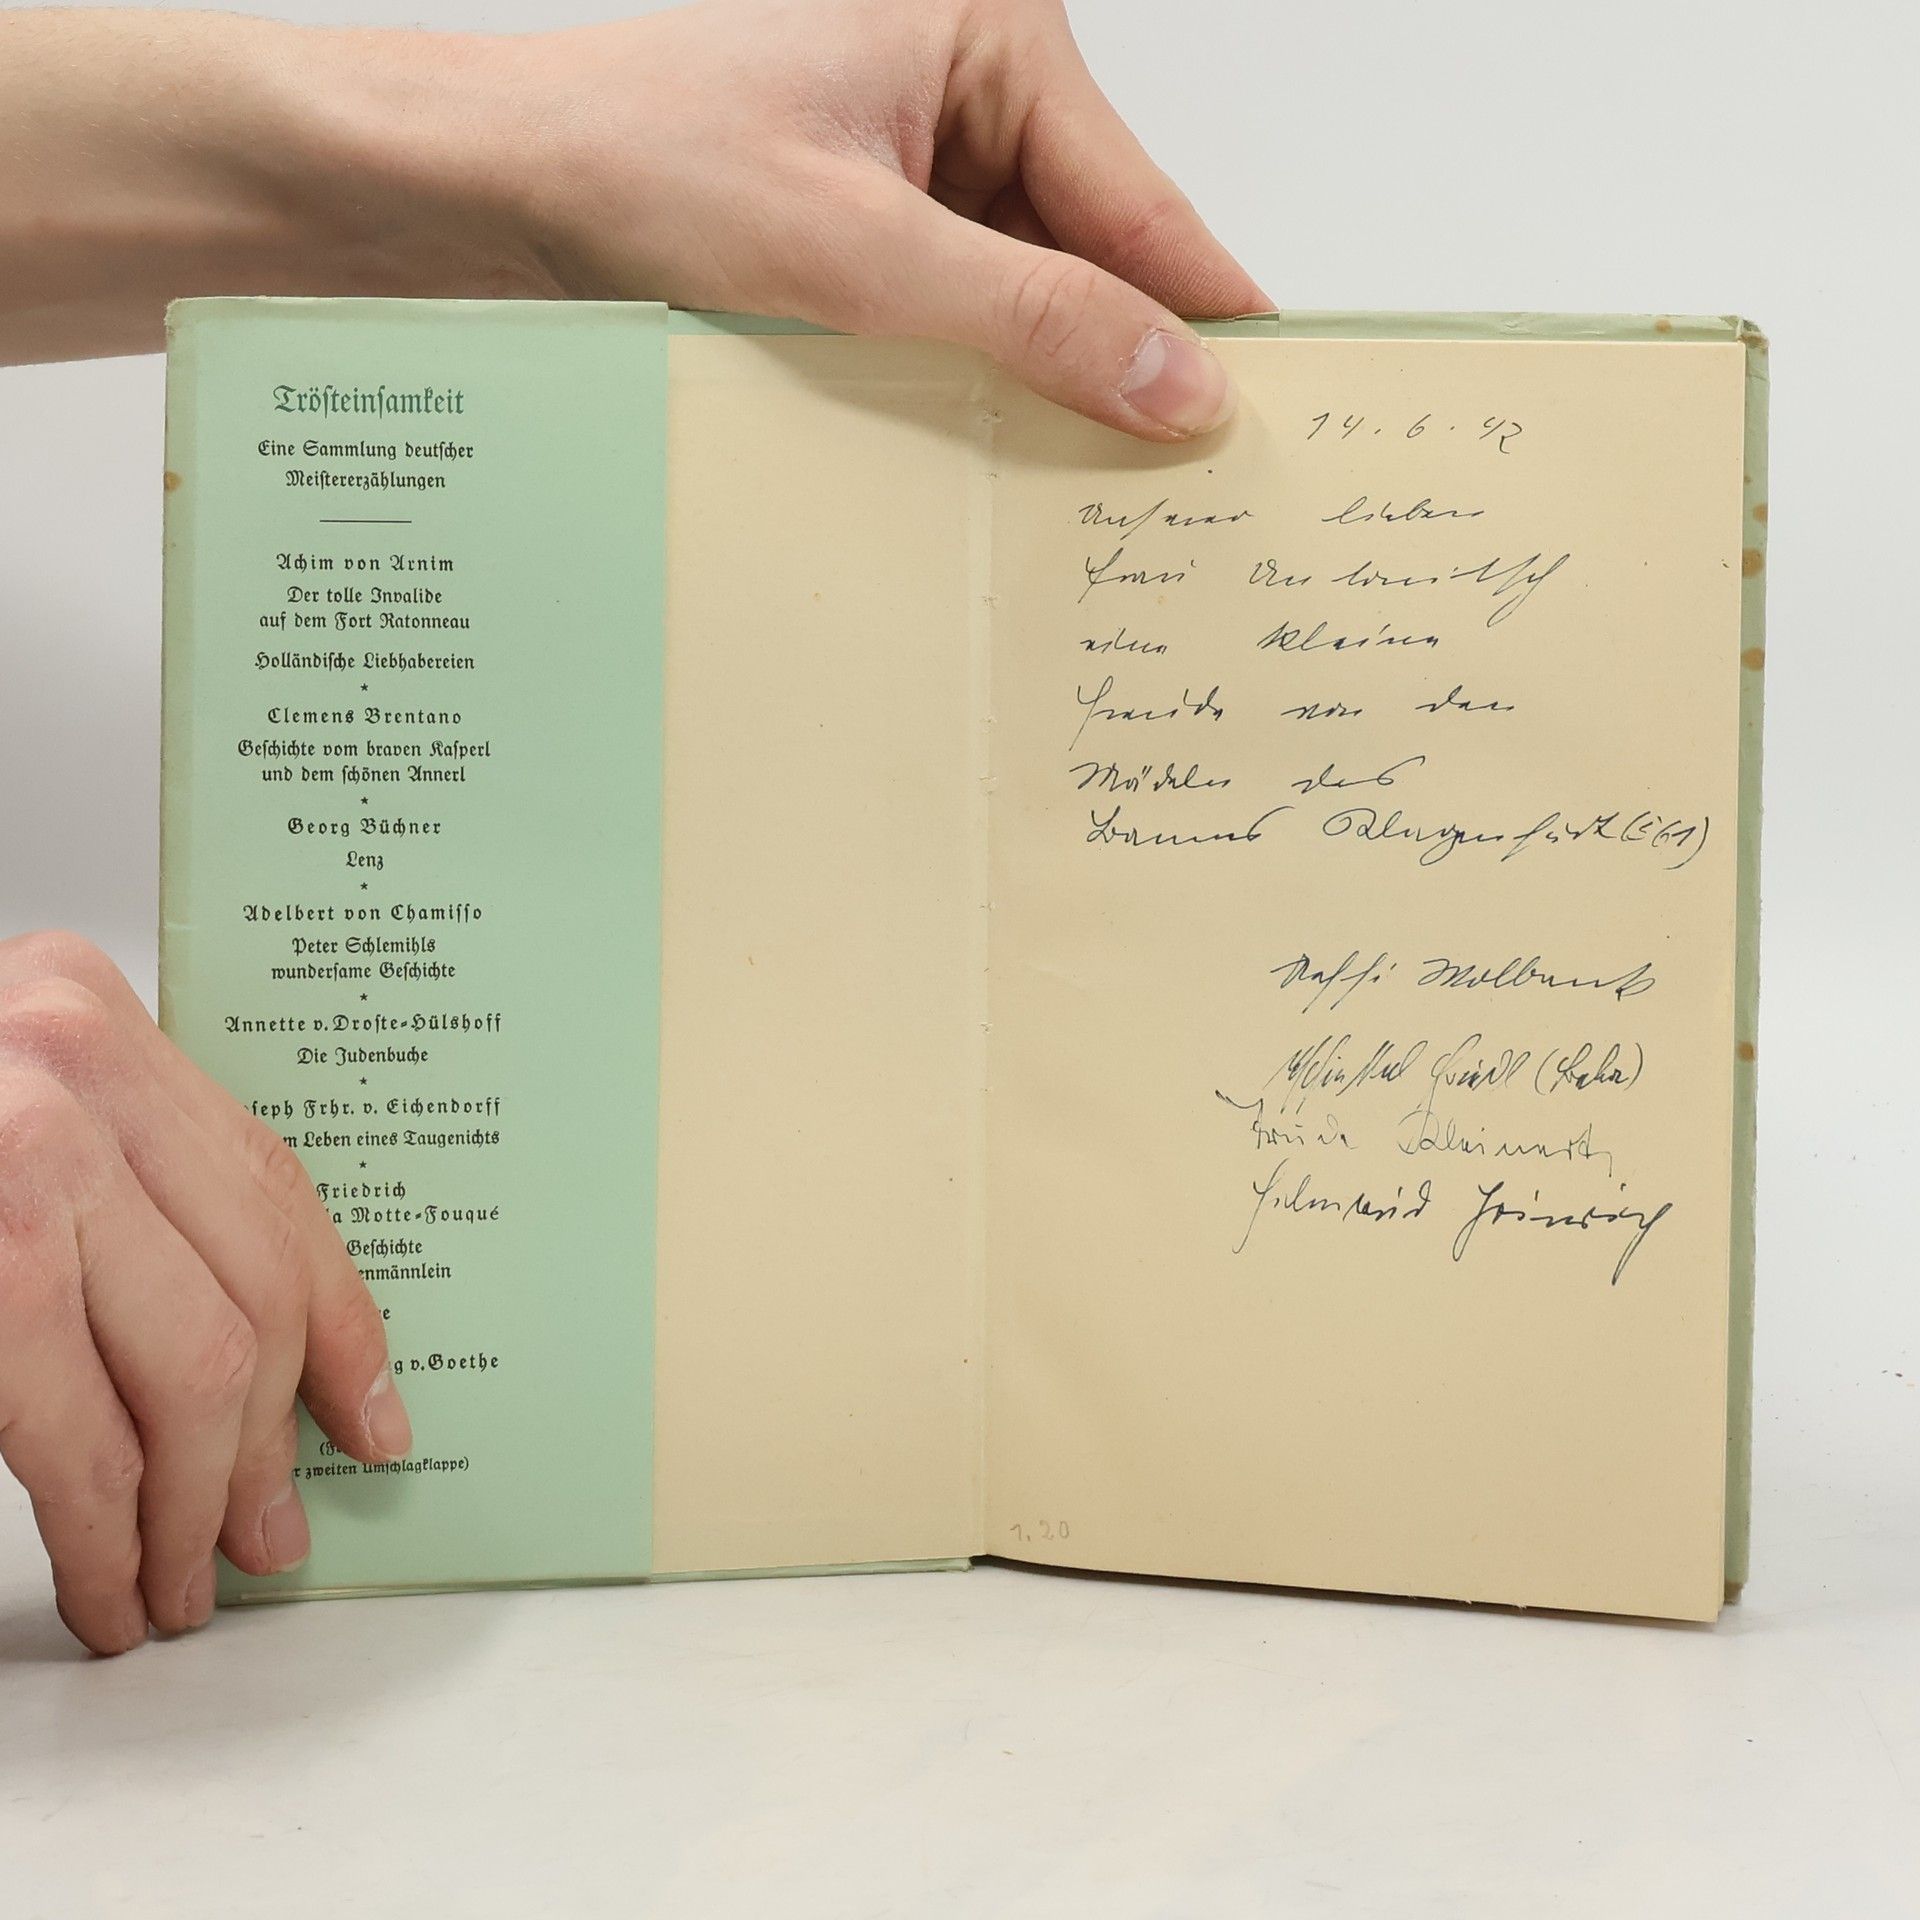 Tröſteinſamkeit
Eine Sammlung deutſcher
Meiſtererzählungen
Achim von Arnim
Der tolle Invalide
auf dem Fort Ratonneau
Holländiſche Liebhabereien
*
Clemens Brentano
Geſchichte vom braven Kaſperl
und dem ſchönen Annerl
*
Georg Büchner
Lenz
*
Adelbert von Chamiſſo
Peter Schlemihls
wunderſame Geſchichte
*
Annette v. Droſte-Hülshoff
Die Judenbuche
*
ſeph Frhr. v. Eichendorff
m Leben eines Taugenichts
*
Friedrich
la Motte-Fouqué
Geſchichte
enmännlein
g v. Goethe
r zweiten Umſchlagklappe)
14. 6. 42
Unserer lieben
Frau
eine kleine
Freude von den
Mädeln des
Bannes Klagenfurt
Trude Kleinert
Heinrich
1.20